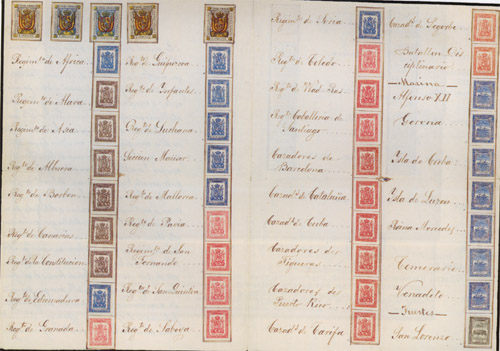 Regim.to de Africa
Regim.to de Alava
Regim.to de Asia
Reg.to de Albuera
Reg.to de Borbon
Reg.to de Canarias
Reg.to de la Constitucion
Reg.to de Estremadura
Reg.to de Granada
Reg.to de Guipuzcoa
Reg.to de Infantes
Reg.to de Luchana
Reg.to de Mallorca
Reg.to de Pavia
Regim.to de San
Fernando
Reg.to de San Quintin
Reg.to de Saboya
Regim.to de Soria
Reg.to de Toledo
Reg.to de Vad Ras
Reg.to Caballeria de
Santiago
Cazadores de
Barcelona
Cazad.s de Cataluña
Cazad.s de Cuba
Cazadores de
Figueras
Cazadores de
Puerto Rico
Cazad.s de Tarifa
Cazad.s de Segorbe
Batallon Dis
ciplinario
Marina
Alfonso XII
Gerona
Isla de Cuba
Isla de Luzon
Mendez
Temerario
Venadito
Fuertes
San Lorenzo